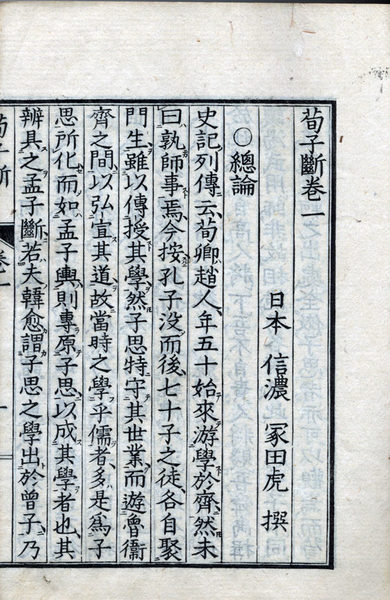 荀子斷卷一
日本 信濃 冢田虎 撰
○總論
史記列傳云荀卿趙人年五十始來游學於齊然未
曰孰師事焉今按孔子沒而後七十子之徒各自聚
門生雖以傳授其學然子思特守其世業而遊魯衞
齊之間以弘宣其道故當時之學乎儒者多是爲子
思所化而如孟子輿則專原子思以成其學者也其
辨具之孟子斷若夫韓愈謂子思之學出於曾子乃
荀子斷 卷一